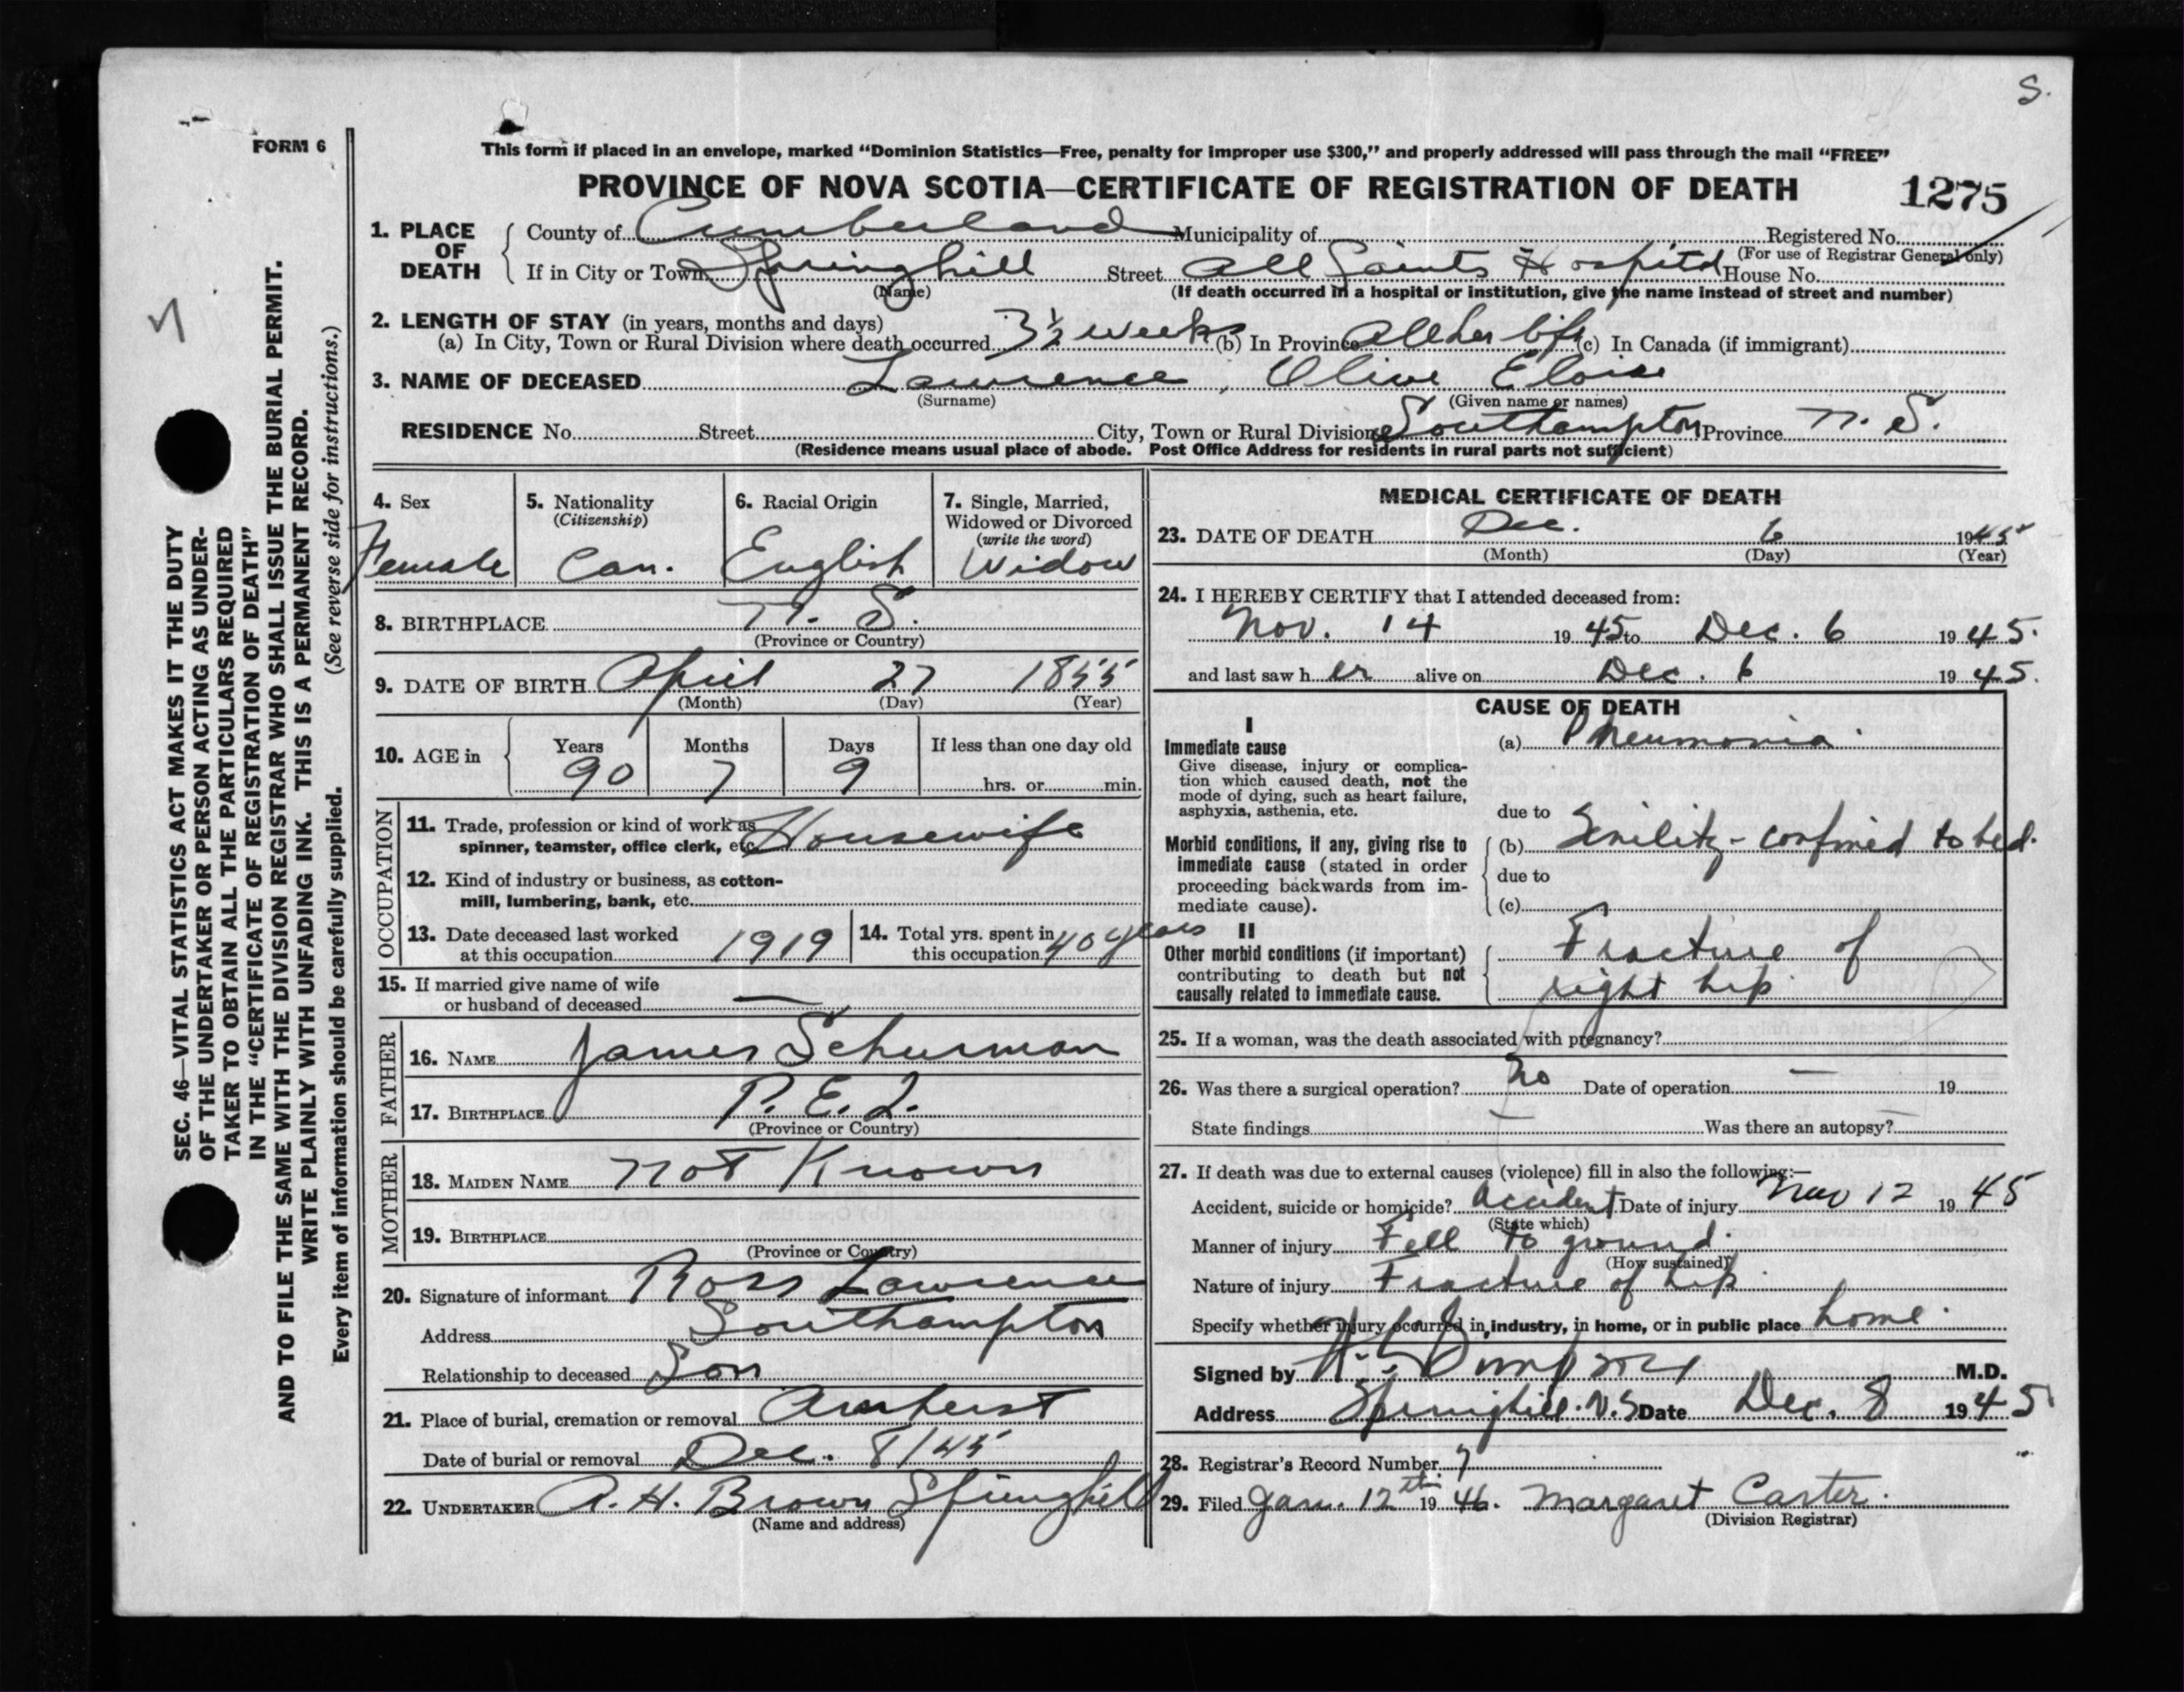 S.
FORM 6
This form if placed in an envelope, marked “Dominion Statistics—Free, penalty for improper use $300,” and properly addressed will pass through the mail “FREE”
PROVINCE OF NOVA SCOTIA—CERTIFICATE OF REGISTRATION OF DEATH 1275
1. PLACE OF DEATH
County of Cumberland Municipality of Registered No.
(For use of Registrar General only)
If in City or Town Springhill Street All Saints Hospital House No.
(Name) (If death occurred in a hospital or institution, give the name instead of street and number)
2. LENGTH OF STAY (in years, months and days)
(a) In City, Town or Rural Division where death occurred 3½ weeks (b) In Province All her life (c) In Canada (if immigrant)
3. NAME OF DECEASED Lawrence, Olive Eloise
(Surname) (Given name or names)
RESIDENCE No. Street City, Town or Rural Division Southampton Province N. S.
(Residence means usual place of abode. Post Office Address for residents in rural parts not sufficient)
4. Sex Female
5. Nationality (Citizenship) Can.
6. Racial Origin English
7. Single, Married, Widowed or Divorced (write the word) Widow
8. BIRTHPLACE N. S.
(Province or Country)
9. DATE OF BIRTH April 27 1855
(Month) (Day) (Year)
10. AGE in Years 90 Months 7 Days 9 If less than one day old hrs. or min.
OCCUPATION
11. Trade, profession or kind of work as spinner, teamster, office clerk, etc. Housewife
12. Kind of industry or business, as cotton-mill, lumbering, bank, etc.
13. Date deceased last worked at this occupation 1919
14. Total yrs. spent in this occupation 40 years
15. If married give name of wife or husband of deceased —
FATHER
16. NAME James Schurman
17. BIRTHPLACE P. E. I.
(Province or Country)
MOTHER
18. MAIDEN NAME Not Known
19. BIRTHPLACE
(Province or Country)
20. Signature of informant Ross Lawrence
Address Southampton
Relationship to deceased Son
21. Place of burial, cremation or removal Amherst
Date of burial or removal Dec. 8/45
22. UNDERTAKER A. H. Brown Springhill
(Name and address)
MEDICAL CERTIFICATE OF DEATH
23. DATE OF DEATH Dec. 6 1945
(Month) (Day) (Year)
24. I HEREBY CERTIFY that I attended deceased from:
Nov. 14 1945 to Dec. 6 1945.
and last saw her alive on Dec. 6 1945.
CAUSE OF DEATH
I
Immediate cause
Give disease, injury or complication which caused death, not the mode of dying, such as heart failure, asphyxia, asthenia, etc.
(a) Pneumonia
due to
Morbid conditions, if any, giving rise to immediate cause (stated in order proceeding backwards from immediate cause).
(b) Senility - confined to bed.
due to
(c)
II
Other morbid conditions (if important) contributing to death but not causally related to immediate cause.
Fracture of
right hip
25. If a woman, was the death associated with pregnancy?
26. Was there a surgical operation? No Date of operation — 19
State findings — Was there an autopsy? —
27. If death was due to external causes (violence) fill in also the following:—
Accident, suicide or homicide? Accident Date of injury Nov 12 1945
(State which)
Manner of injury Fell to ground.
(How sustained)
Nature of injury Fracture of hip.
Specify whether injury ocurred in industry, in home, or in public place home.
Signed by M.D.
Address Springhill. N.S Date Dec. 8 1945.
28. Registrar's Record Number 7
29. Filed Jan. 12th 1946. Margaret Carter.
(Division Registrar)
SEC. 46—VITAL STATISTICS ACT MAKES IT THE DUTY
OF THE UNDERTAKER OR PERSON ACTING AS UNDER-
TAKER TO OBTAIN ALL THE PARTICULARS REQUIRED
IN THE “CERTIFICATE OF REGISTRATION OF DEATH”
AND TO FILE THE SAME WITH THE DIVISION REGISTRAR WHO SHALL ISSUE THE BURIAL PERMIT.
WRITE PLAINLY WITH UNFADING INK. THIS IS A PERMANENT RECORD.
Every item of information should be carefully supplied. (See reverse side for instructions.)